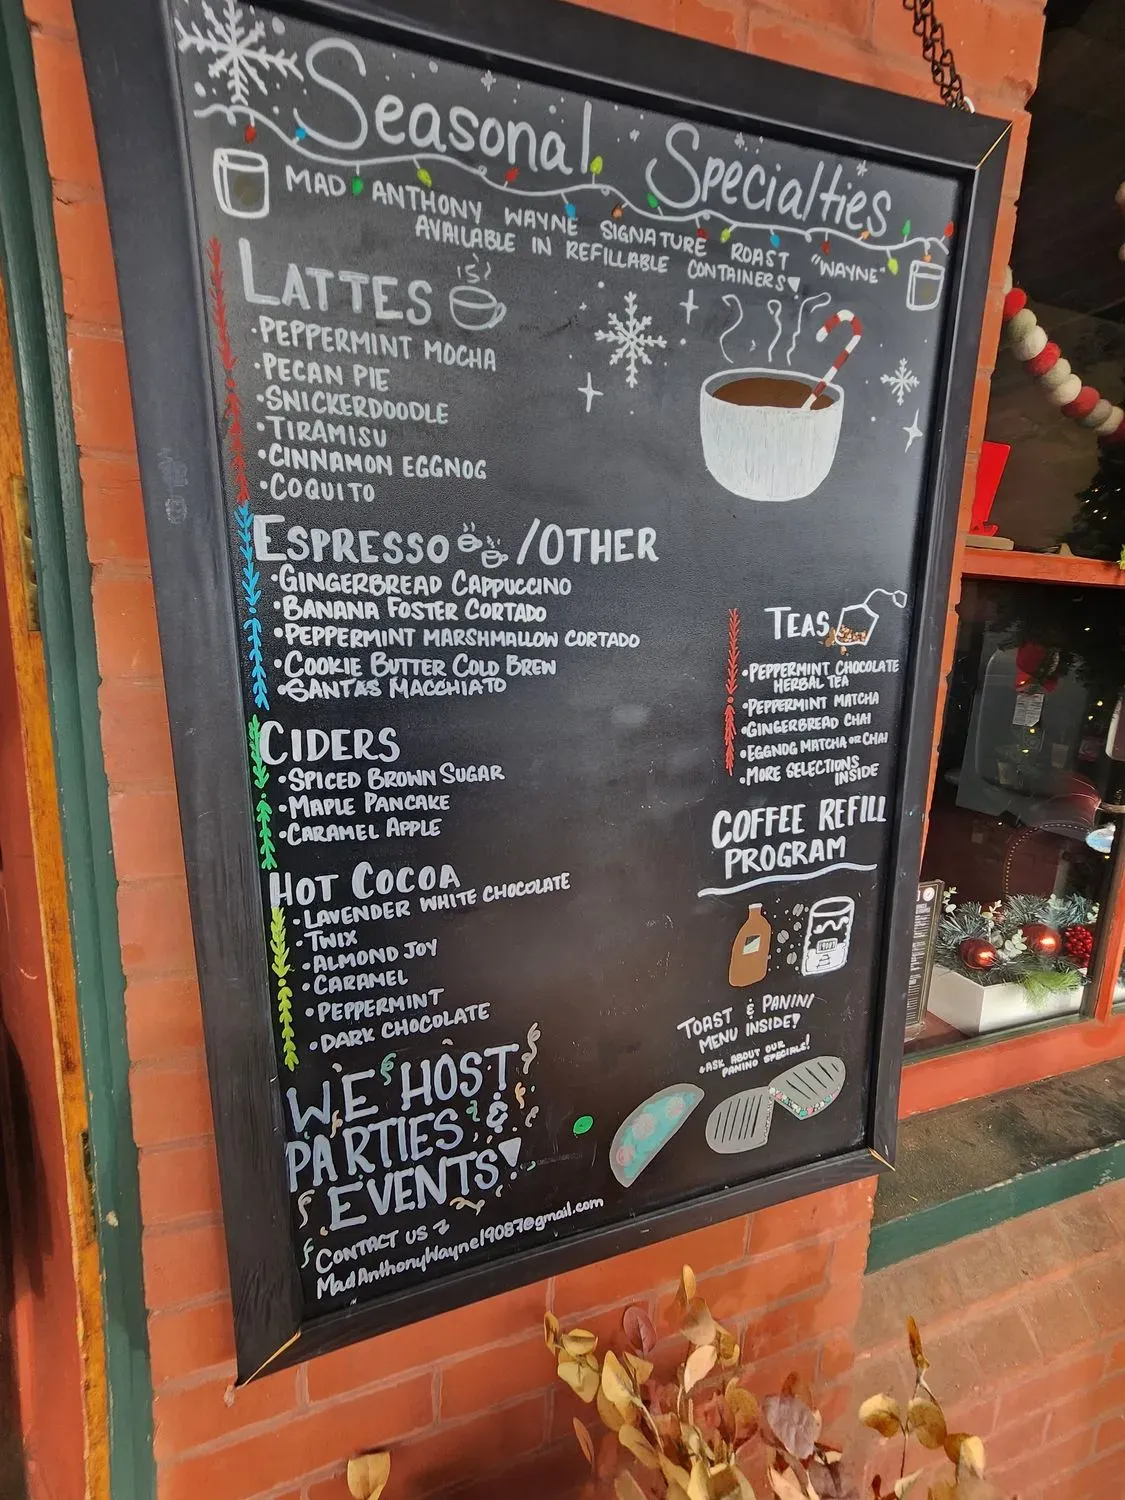 Seasonal Specialties
MAD ANTHONY WAYNE SIGNATURE ROAST "WAYNE"
AVAILABLE IN REFILLABLE CONTAINERS
LATTES
•PEPPERMINT MOCHA
•PECAN PIE
•SNICKERDOODLE
•TIRAMISU
•CINNAMON EGGNOG
•COQUITO
ESPRESSO /OTHER
•GINGERBREAD CAPPUCCINO
•BANANA FOSTER CORTADO
•PEPPERMINT MARSHMALLOW CORTADO
•COOKIE BUTTER COLD BREW
•SANTA'S MACCHIATO
CIDERS
•SPICED BROWN SUGAR
•MAPLE PANCAKE
•CARAMEL APPLE
HOT COCOA
•LAVENDER WHITE CHOCOLATE
•TWIX
•ALMOND JOY
•CARAMEL
•PEPPERMINT
•DARK CHOCOLATE
WE HOST
PARTIES &
EVENTS!
CONTACT US
MadAnthonyWayne19087@gmail.com
TEAS
•PEPPERMINT CHOCOLATE
HERBAL TEA
•PEPPERMINT MATCHA
•GINGERBREAD CHAI
•EGGNOG MATCHA OR CHAI
•MORE SELECTIONS
INSIDE
COFFEE REFILL
PROGRAM
TOAST & PANINI
MENU INSIDE!
*ASK ABOUT OUR
PANINO SPECIALS!